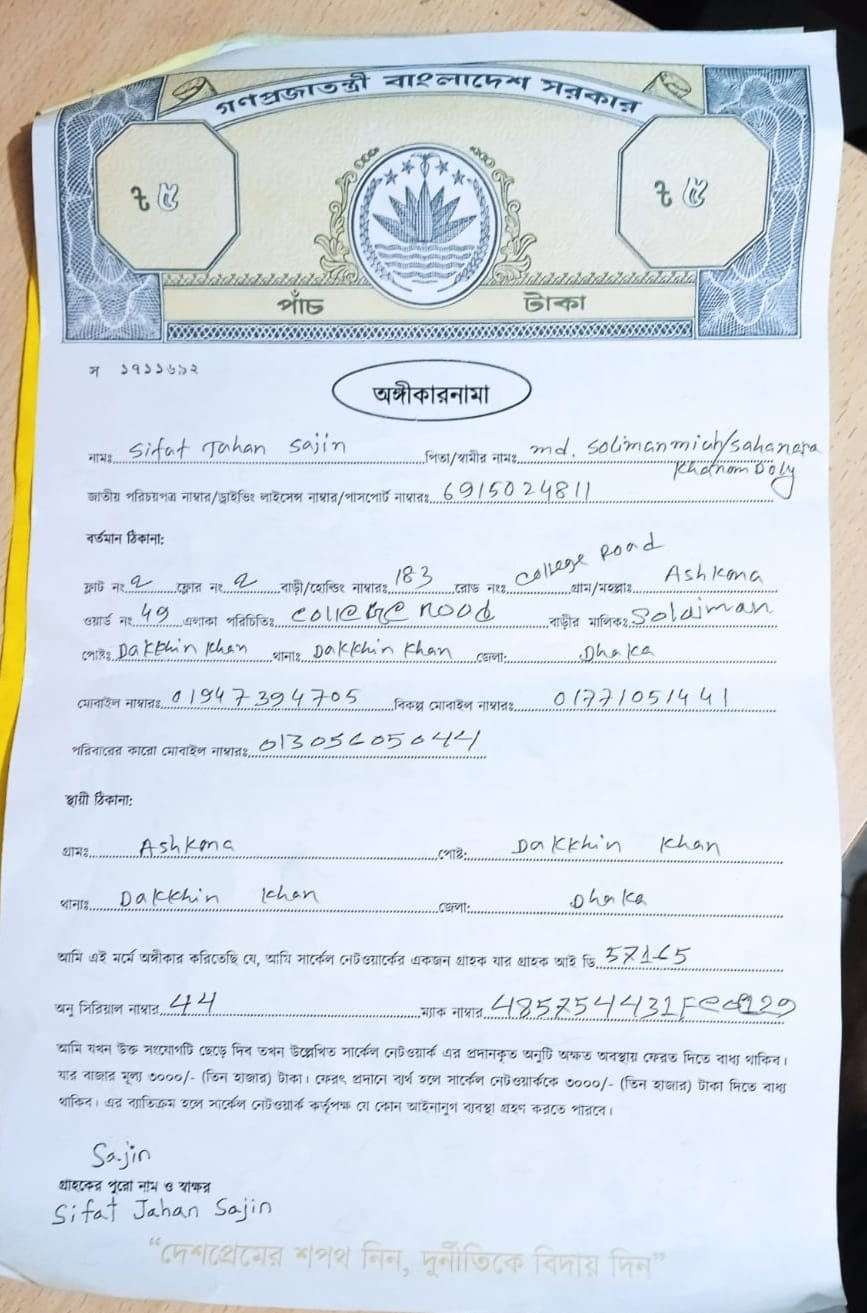 গণপ্রজাতন্ত্রী বাংলাদেশ সরকার
৳ ৫ ৳ ৫
পাঁচ টাকা
স ১৭১১৬১২
অঙ্গীকারনামা
নামঃ Sifat Jahan Sajin পিতা/স্বামীর নামঃ md. Solimanmiah/Sahanara
Khanom Doly
জাতীয় পরিচয়পত্র নাম্বার/ড্রাইভিং লাইসেন্স নাম্বার/পাসপোর্ট নাম্বারঃ 6915024811
বর্তমান ঠিকানা:
ফ্লাট নং 2 ফ্লোর নং 2 বাড়ী/হোল্ডিং নাম্বারঃ 183 রোড নংঃ College Road গ্রাম/মহল্লাঃ Ashkona
ওয়ার্ড নং 49 এলাকা পরিচিতিঃ College Road বাড়ীর মালিকঃ Solaiman
পোষ্টঃ Dakkhin Khan থানাঃ Dakkhin Khan জেলা: Dhaka
মোবাইল নাম্বারঃ 01947394705 বিকল্প মোবাইল নাম্বারঃ 01771051441
পরিবারের কারো মোবাইল নাম্বারঃ 01305605044
স্থায়ী ঠিকানা:
গ্রামঃ Ashkona পোষ্ট: Dakkhin Khan
থানাঃ Dakkhin Khan জেলা: Dhaka
আমি এই মর্মে অঙ্গীকার করিতেছি যে, আমি সার্কেল নেটওয়ার্কের একজন গ্রাহক যার গ্রাহক আই ডি 57165
অনু সিরিয়াল নাম্বার 44 ম্যাক নাম্বার
আমি যখন উক্ত সংযোগটি ছেড়ে দিব তখন উল্লেখিত সার্কেল নেটওয়ার্ক এর প্রদানকৃত অনুটি অক্ষত অবস্থায় ফেরত দিতে বাধ্য থাকিব।
যার বাজার মূল্য ৩০০০/- (তিন হাজার) টাকা। ফেরৎ প্রদানে ব্যর্থ হলে সার্কেল নেটওয়ার্ককে ৩০০০/- (তিন হাজার) টাকা দিতে বাধ্য
থাকিব। এর ব্যতিক্রম হলে সার্কেল নেটওয়ার্ক কর্তৃপক্ষ যে কোন আইনানুগ ব্যবস্থা গ্রহণ করতে পারবে।
Sajin
গ্রাহকের পুরো নাম ও স্বাক্ষর
Sifat Jahan Sajin
“দেশপ্রেমের শপথ নিন, দুর্নীতিকে বিদায় দিন”